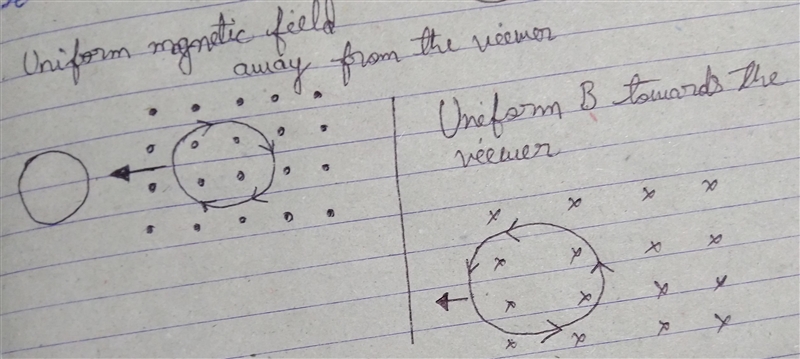 Uniform magnetic field
away from the viewer
Uniform B towards the
viewer